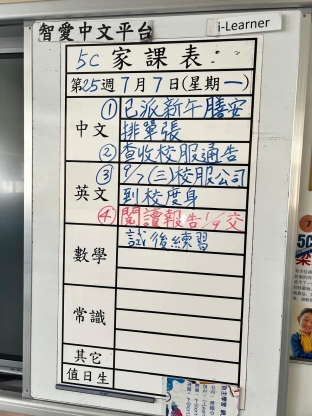 智愛中文平台
i-Learner
5C 家課表
第25週 7月7日(星期一)
中文
① 已派新午膳安
排單張
② 查收校服通告
英文
③ 9/7(三)校服公司
到校度身
④ 閱讀報告1/9交
數學
試後練習
常識
其它
值日生
5C